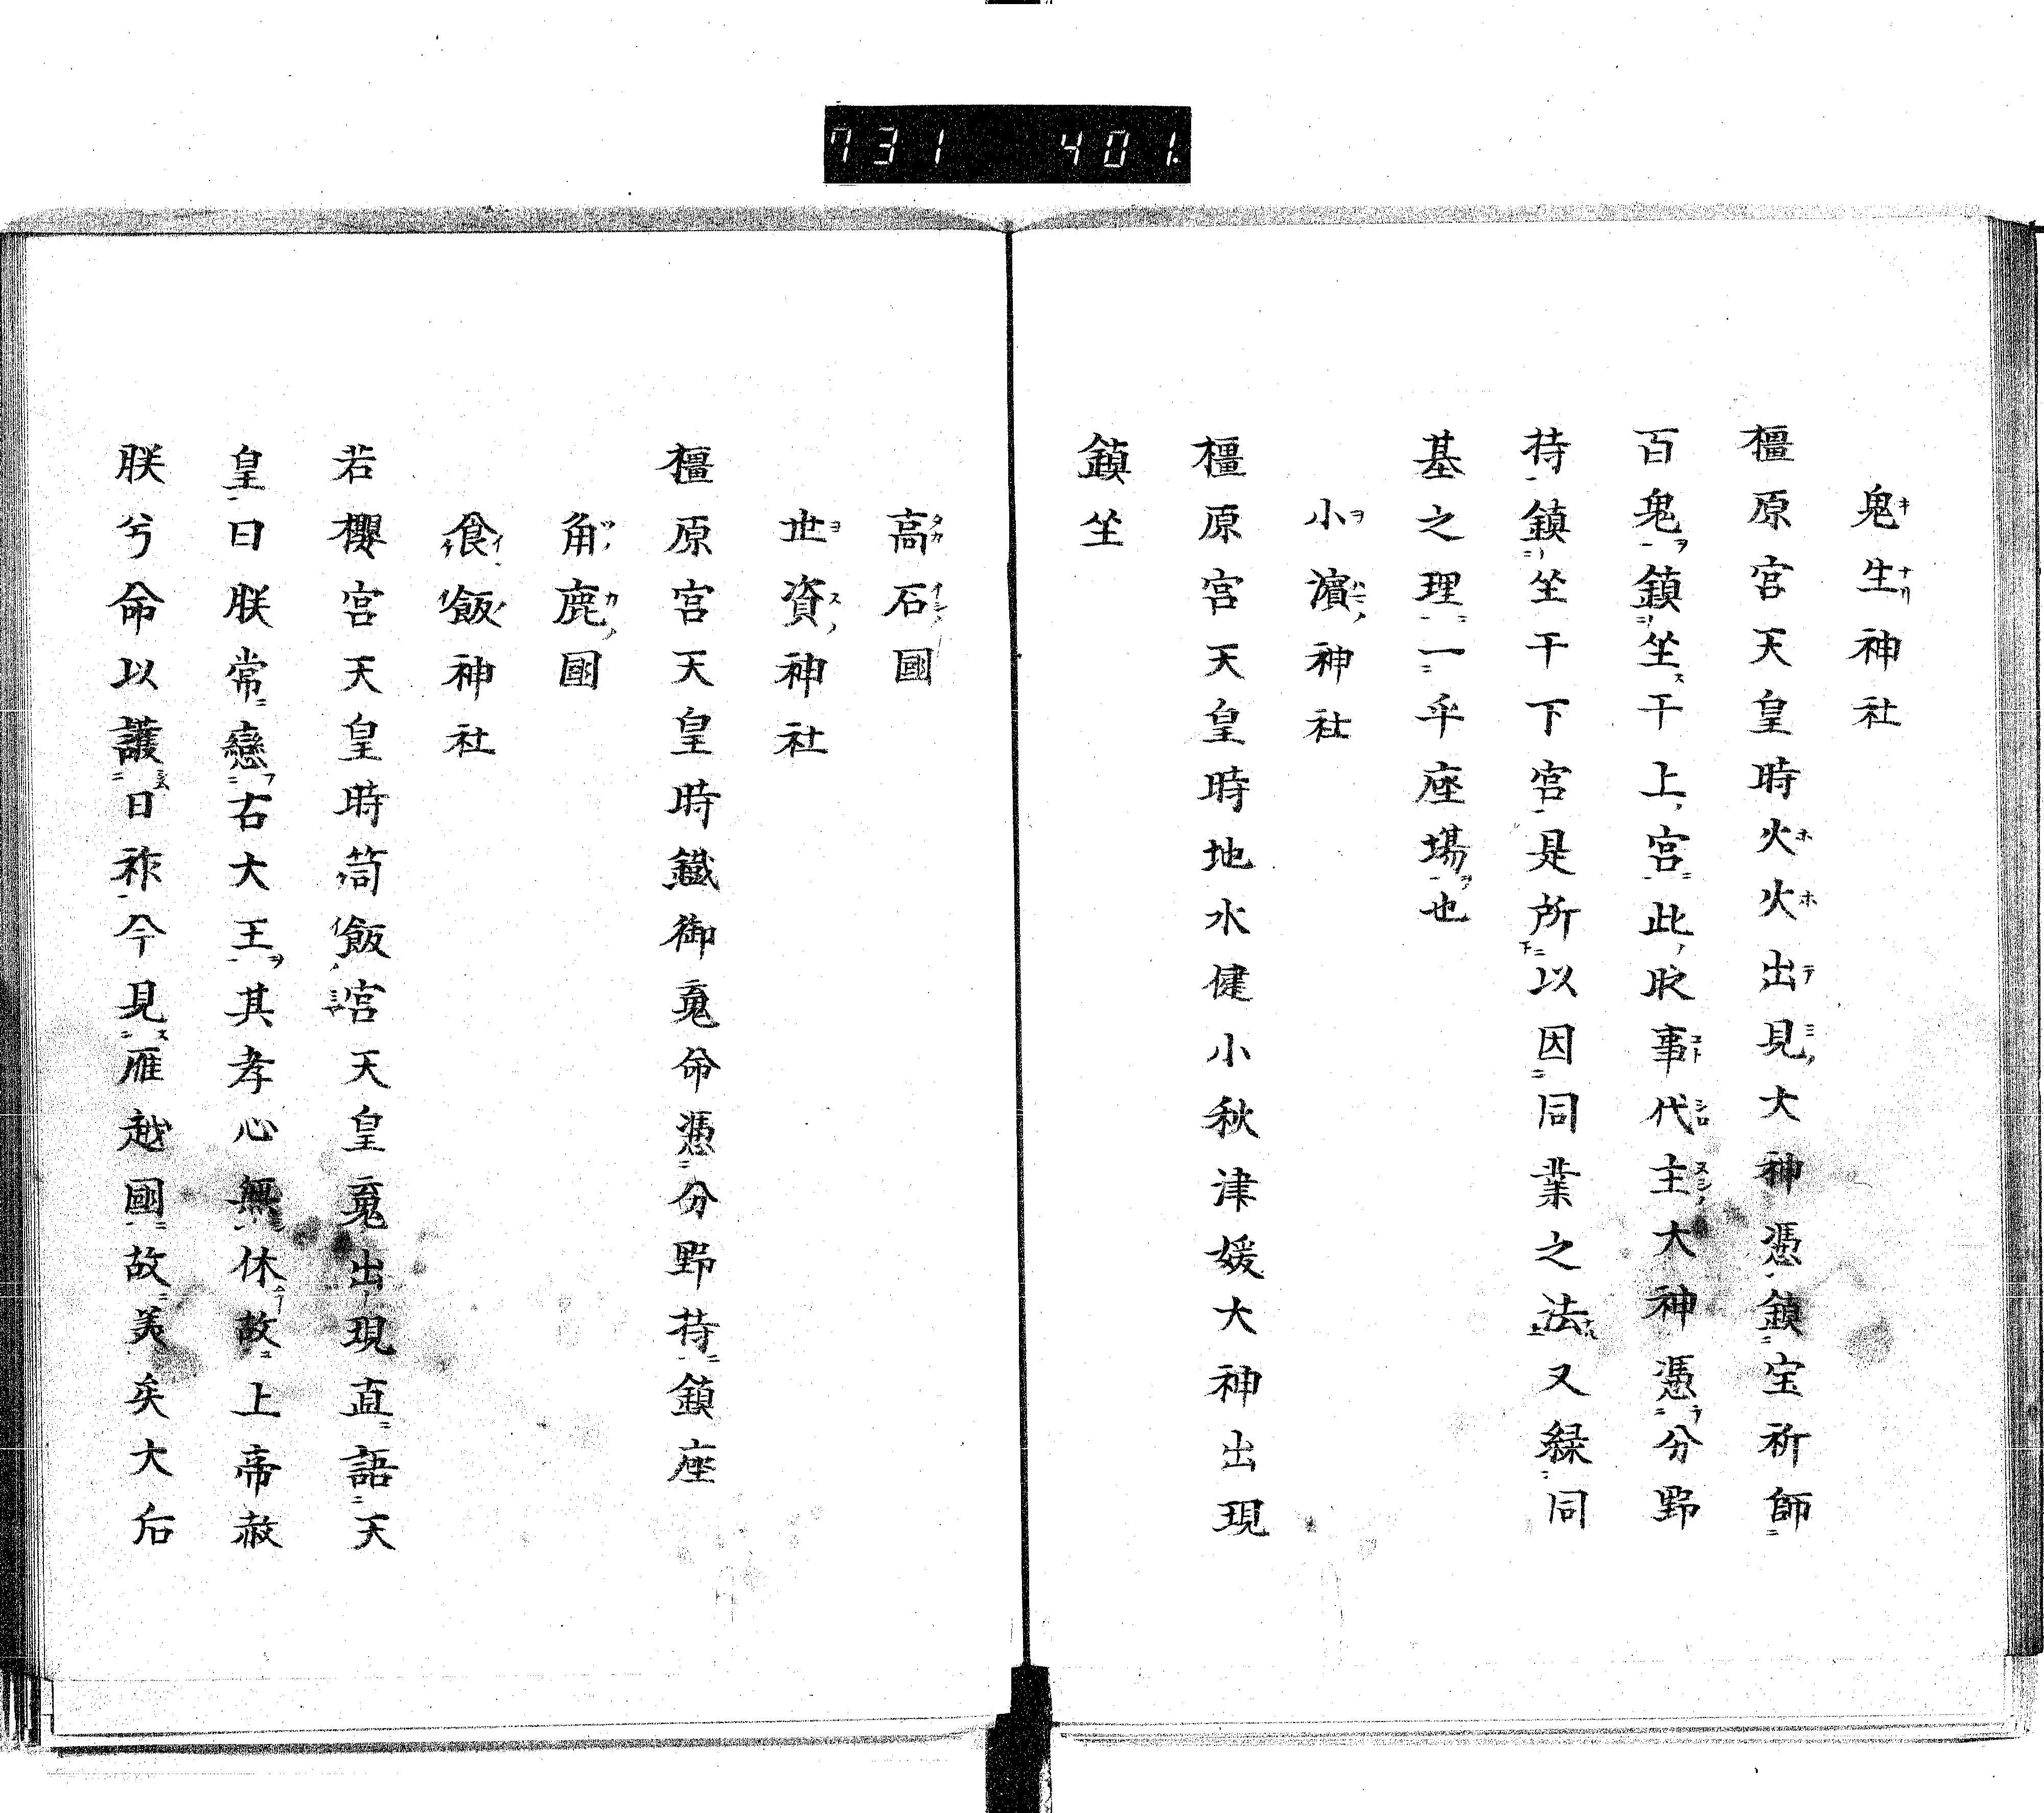 731 401.
鬼生神社
橿原宮天皇時火火出見大神憑鎮宝祈師
百鬼鎮坐于上宮此取事代主大神憑分野
持鎮坐于下宮是所以因同業之法又縁同
基之理一乎座場也
小濱神社
橿原宮天皇時地水健小秋津媛大神出現
鎮坐
高石國
世資神社
橿原宮天皇時鐵御䰟命憑分野持鎮座
角鹿國
食飯神社
若櫻宮天皇時笥飯宮天皇䰟出現直語天
皇曰朕常戀右大王其孝心無休故上帝赦
朕兮命以護日祚今見雁越國故美矣大后